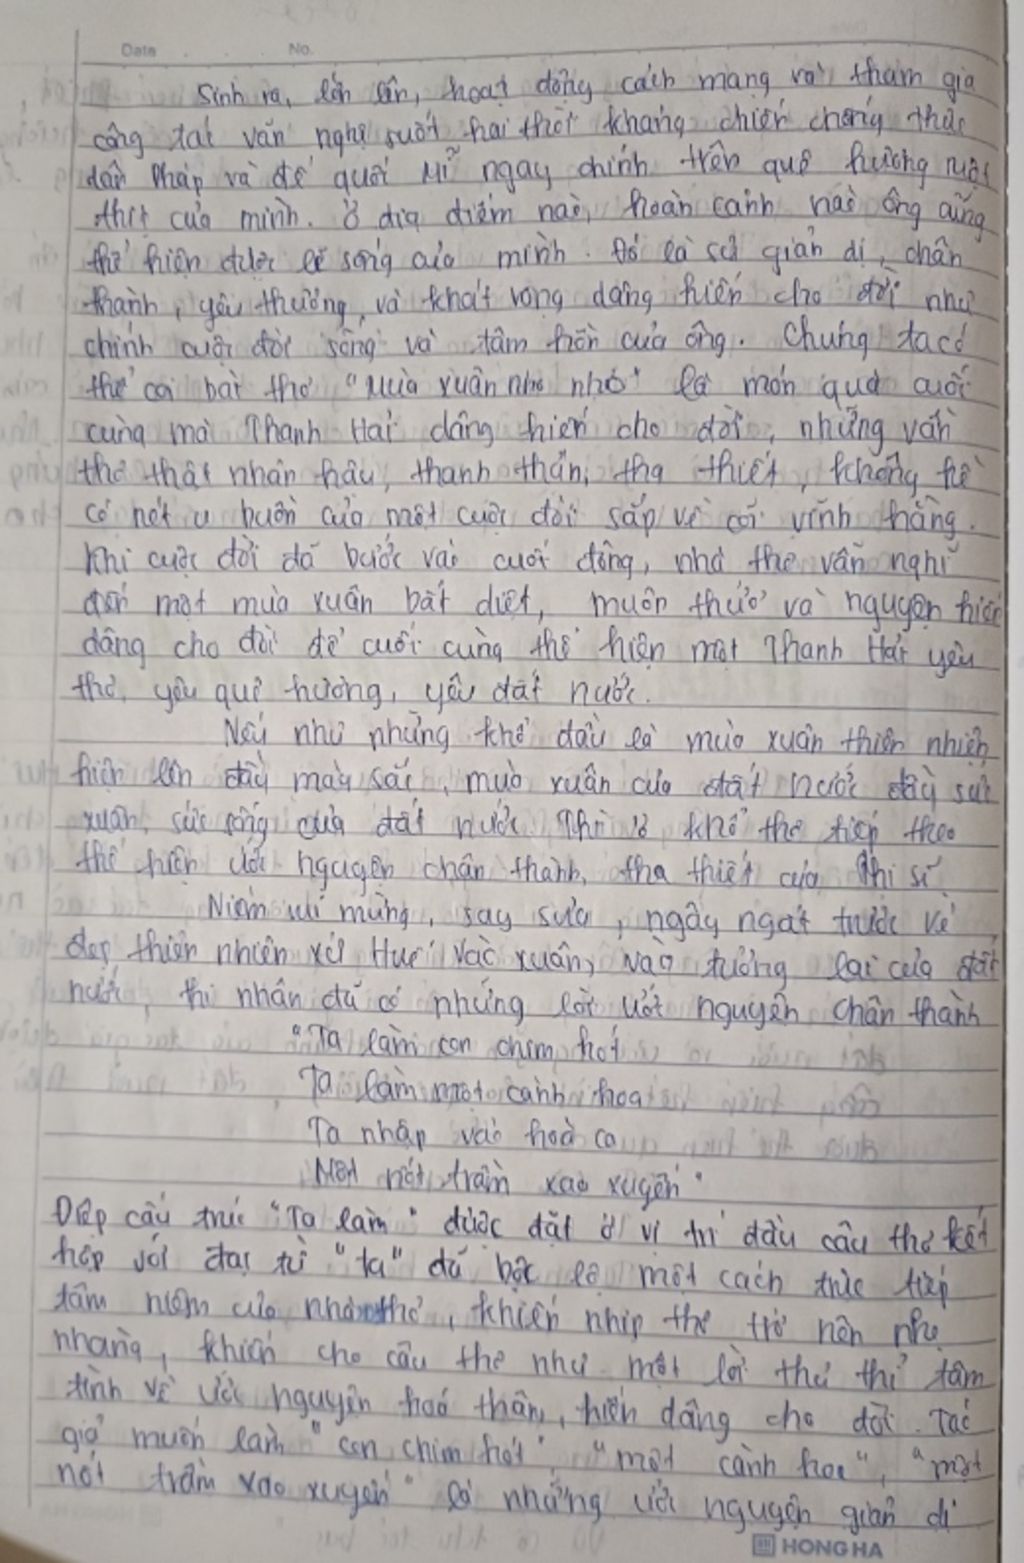 Date No.
Sinh ra, lớn lên, hoạt động cách mạng và tham gia
công tác văn nghệ suốt hai thời kháng chiến chống thực
dân Pháp và đế quốc Mĩ ngay chính trên quê hương ruột
thịt của mình. Ở địa điểm nào, hoàn cảnh nào ông cũng
thể hiện được lẽ sống của mình. Đó là sự giản dị, chân
thành, yêu thương, và khát vọng dâng hiến cho đời như
chính cuộc đời sống và tâm hồn của ông. Chúng ta có
thể coi bài thơ "Mùa xuân nho nhỏ" là món quà cuối
cùng mà Thanh Hải dâng hiến cho đời, những vần
thơ thật nhân hậu, thanh thản, tha thiết, không hề
có nét u buồn của một cuộc đời sắp về cõi vĩnh hằng.
Khi cuộc đời đã bước vào cuối đông, nhà thơ vẫn nghĩ
đến một mùa xuân bất diệt, muôn thưở và nguyện hiến
dâng cho đời để cuối cùng thể hiện một Thanh Hải yêu
thơ, yêu quê hương, yêu đất nước.
Nếu như những khổ đầu là mùa xuân thiên nhiên
hiện lên đầy màu sắc, mùa xuân của đất nước đầy sức
xuân, sức sống của đất nước. Thì ở khổ thơ tiếp theo
thể hiện ước nguyện chân thành, tha thiết của thi sĩ.
Niềm vui mừng, say sưa, ngây ngất trước vẻ
đẹp thiên nhiên xứ Huế vào xuân, vào tương lai của đất
nước, thi nhân đã có những lời ước nguyện chân thành
"Ta làm con chim hót
Ta làm một cành hoa
Ta nhập vào hoà ca
Một nốt trầm xao xuyến"
Điệp cấu trúc "Ta làm" được đặt ở vị trí đầu câu thơ kết
hợp với đại từ "ta" đã bộc lộ một cách trực tiếp
tâm niệm của nhà thơ, khiến nhịp thơ trở nên nhẹ
nhàng, khiến cho câu thơ như một lời thủ thỉ tâm
tình về ước nguyện hoá thân, hiến dâng cho đời. Tác
giả muốn làm "con chim hót", "một cành hoa", "một
nốt trầm xao xuyến" là những ước nguyện giản dị
HONG HA